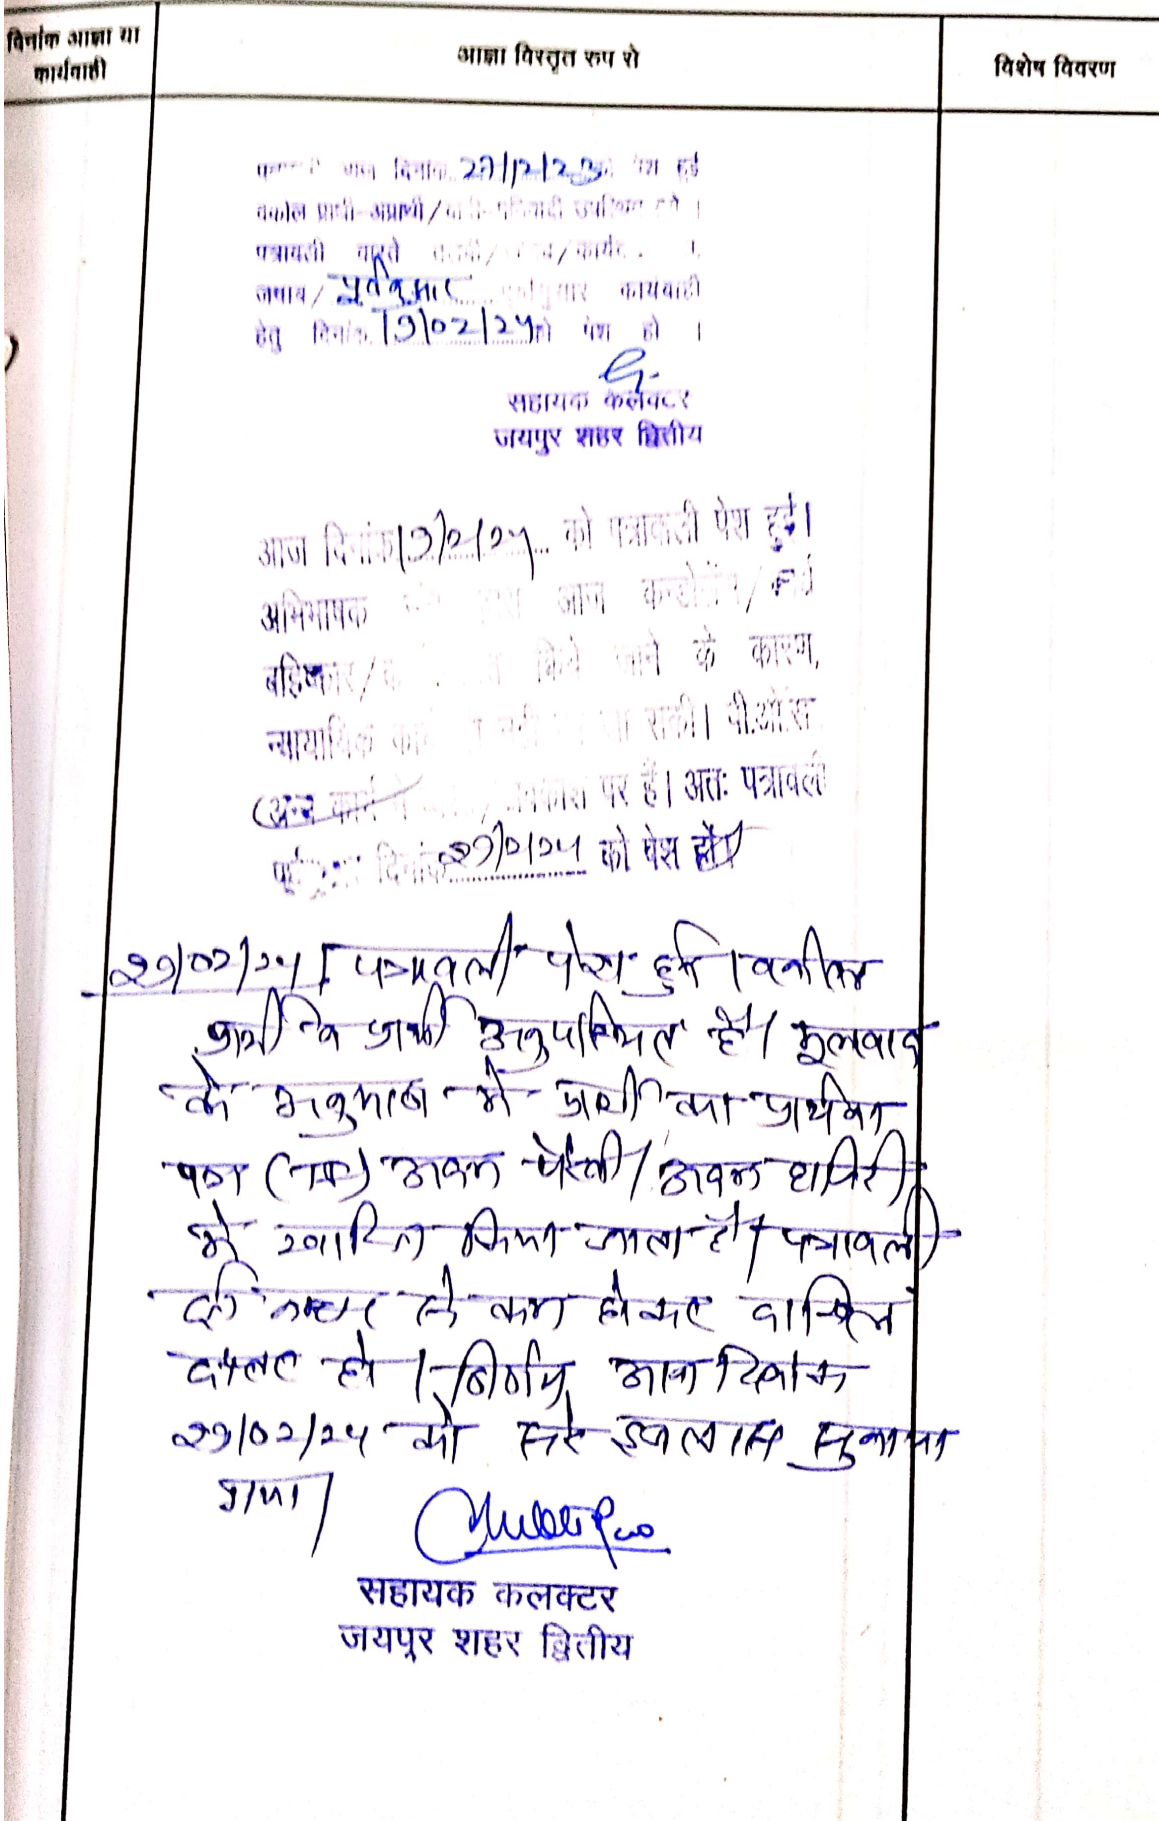 दिनांक आज्ञा या
कार्यवाही
आज्ञा विस्तृत रुप से
विशेष विवरण
आज दिनांक 27/12/23 को पेश हुई
वकील प्रार्थी-अप्रार्थी/वादी-प्रतिवादी उपस्थित
पत्रावली वास्ते
जवाब/ पूर्वानुसार कार्यवाही
हेतु दिनांक 19/02/24 को पेश हो ।
सहायक कलक्टर
जयपुर शहर द्वितीय
आज दिनांक 19/2/24 को पत्रावली पेश हुई।
अभिभाषक आज कन्डोलेंस/कार्य
बहिष्कार/ किये जाने के कारण,
न्यायायिक सकी। पी.ओ.सा
अन्य कार्य अवकाश पर हैं। अतः पत्रावली
दिनांक 27/2/24 को पेश हो।
27/02/24 पत्रावली पेश हुई। वकील
प्रार्थी व प्रार्थी अनुपस्थित है। मूलवाद
के में प्रार्थी का प्रार्थना
पत्र अदम पैरवी/अदम हाजिरी
में खारिज किया जाता है। पत्रावली
नम्बर से कम होकर दाखिल
दफ्तर हो। निर्णय आज दिनांक
27/02/24 को सरे इजलास सुनाया
गया।
सहायक कलक्टर
जयपुर शहर द्वितीय